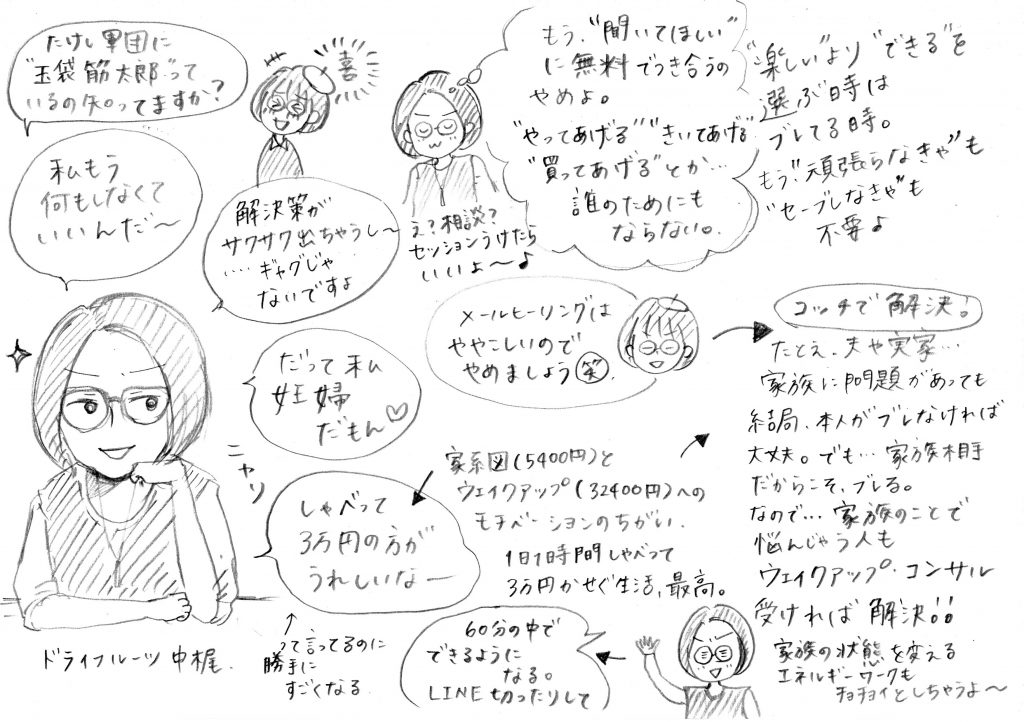 たけし軍団に
"玉袋筋太郎"って
いるの知ってますか？
喜
私もう
何もしなくて
いいんだ〜
解決策が
サクサク出ちゃうし〜
‥‥ギャグじゃ
ないですよ
え？相談？
セッションうけたら
いいよ〜♪
もう、"聞いてほしい"
に無料でつき合うの
やめよ。
"やってあげる""きいてあげる"
"買ってあげる"とか…
誰のためにも
ならない。
"楽しい"より"できる"を
選ぶ時は
ブレてる時。
もう"頑張らなきゃ"も
"セーブしなきゃ"も
不要♪
メールヒーリングは
ややこしいので
やめましょう笑.
だって私
妊婦
だもん♡
しゃべって
3万円の方が
うれしいなー
ニヤリ
ドライフルーツ中梶.
↑って言ってるのに
勝手に
すごくなる.
家系図(5400円)と
ウェイクアップ(32400円)への
モチベーションのちがい.
1日1時間しゃべって
3万円かせぐ生活、最高。
60分の中で
できるように
なる。
LINE切ったりして
コッチで解決!
たとえ、夫や実家…
家族に問題があっても
結局、本人がブレなければ
大丈夫。でも…家族相手
だからこそ、ブレる。
なので…家族のことで
悩んじゃう人も
ウェイクアップ・コンサル
受ければ解決!!
家族の状態を変える
エネルギーワークも
チョチョイとしちゃうよ〜